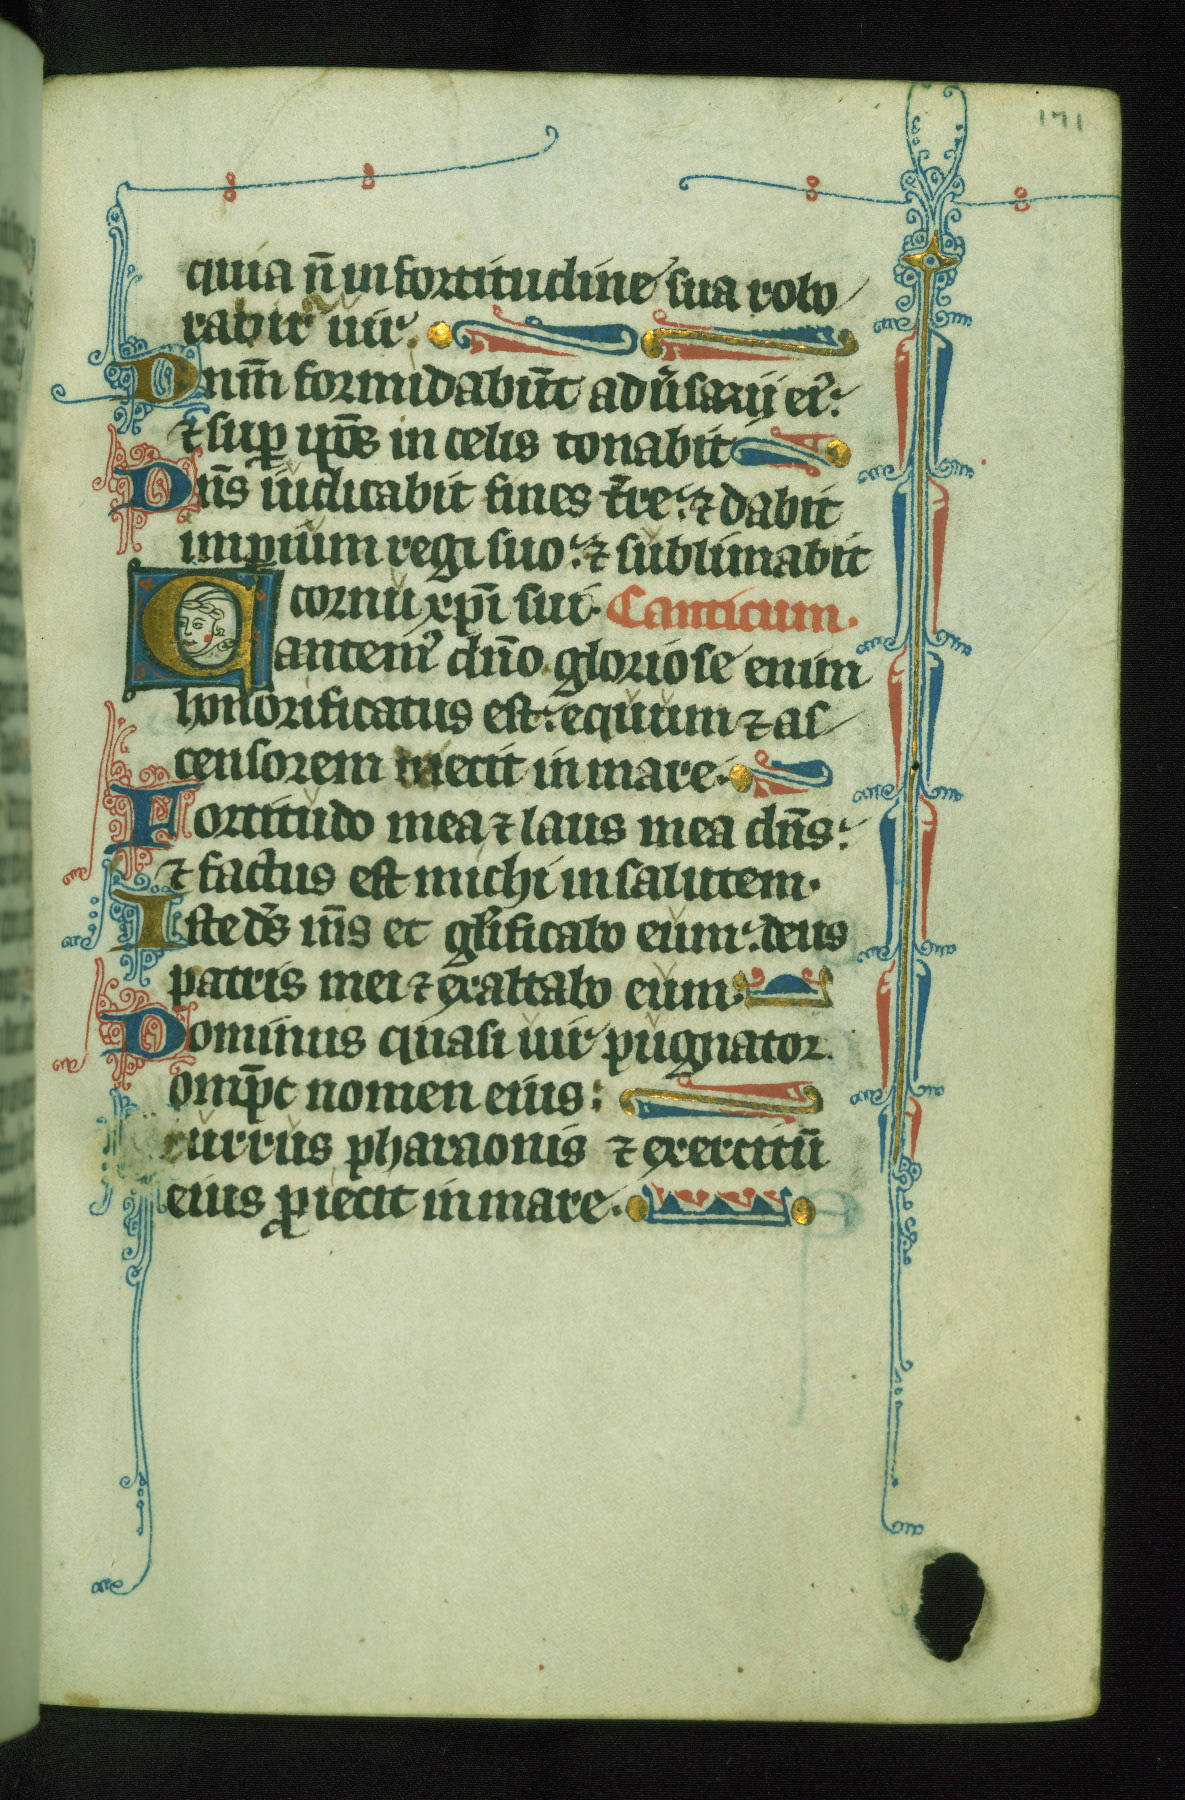 171
quia n̄ in fortitudine sua robo
rabit᷑ uir.
Dnm̄ formidabūt adu᷑sarij ei᷒:
⁊ sup ip̄os in celis tonabit
Dn̄s iudicabit fines t᷑re: ⁊ dabit
imꝑium regi suo: ⁊ sublimabit
cornu xp̄i sui. Canticum.
Cantem᷒ dn̄o gloriose enim
honorificatus est: equum ⁊ as
censorem iecit in mare.
Fortitudo mea ⁊ laus mea dn̄s:
⁊ factus est michi in salutem.
Iste ds̄ m̄s et gl̄ificabo eum: deus
patris mei ⁊ exaltabo eum.
Dominus quasi uir pugnator
omp̄c nomen eius:
currus pharaonis ⁊ exercitū
eius ꝓiecit in mare.